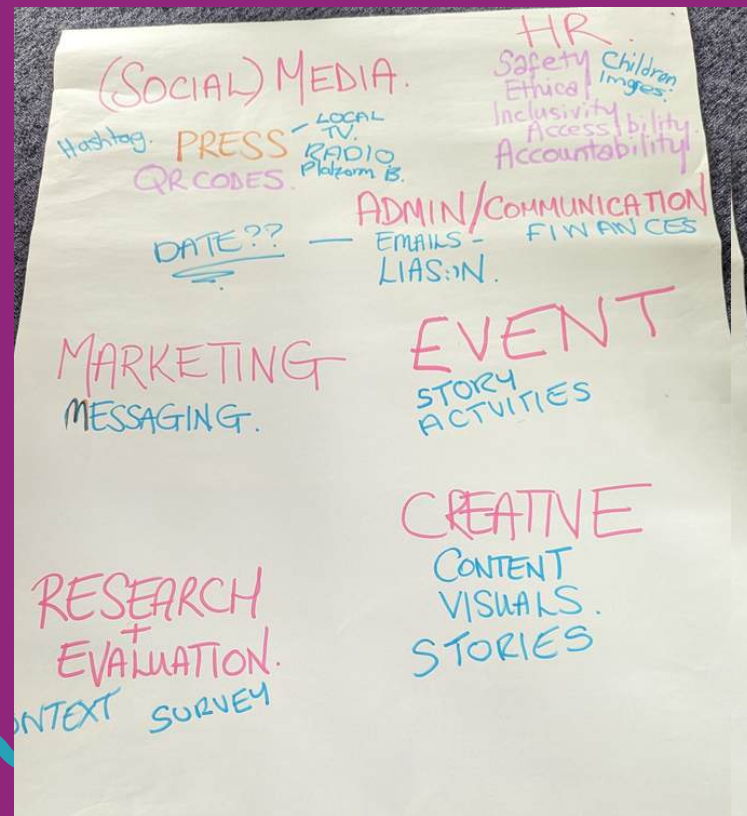 (SOCIAL) MEDIA.
Hashtag.
PRESS - LOCAL
TV.
RADIO
Platform B.
QR CODES.
HR.
Safety
Ethical
Children
Imges.
Inclusivity
Accessibility.
Accountability
ADMIN/COMMUNICATION
DATE?? — EMAILS -
LIASION.
FINANCES
MARKETING
MESSAGING.
EVENT
STORY
ACTVITIES
CREATIVE
CONTENT
VISUALS.
STORIES
RESEARCH
+
EVALUATION.
ONTEXT SURVEY